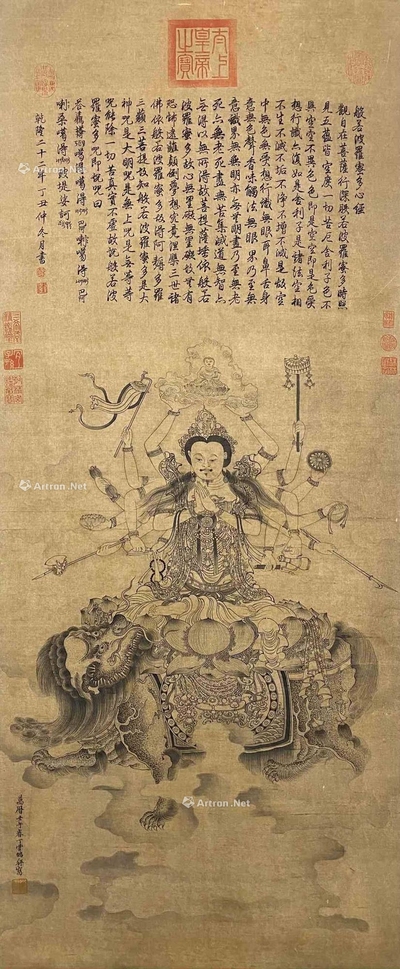 太上皇帝之寶
般若波羅蜜多心經
觀自在菩薩行深般若波羅蜜多時照
見五蘊皆空度一切苦厄舍利子色不
異空空不異色色即是空空即是色受
想行識亦復如是舍利子是諸法空相
不生不滅不垢不淨不增不減是故空
中無色無受想行識無眼耳鼻舌身
意無色聲香味觸法無眼界乃至無
意識界無無明亦無無明盡乃至無老
死亦無老死盡無苦集滅道無智亦
無得以無所得故菩提薩埵依般若
波羅蜜多故心無罣礙無罣礙故無有
恐怖遠離顛倒夢想究竟涅槃三世諸
佛依般若波羅蜜多故得阿耨多羅
三藐三菩提故知般若波羅蜜多是大
神咒是大明咒是無上咒是無等等
咒能除一切苦真實不虛故說般若波
羅蜜多咒即說咒曰
乾隆二十二年丁丑仲冬月書
萬曆壬午春丁雲鵬敬寫
Artron.Net
Artron.Net
Artron.Net
Artron.Net